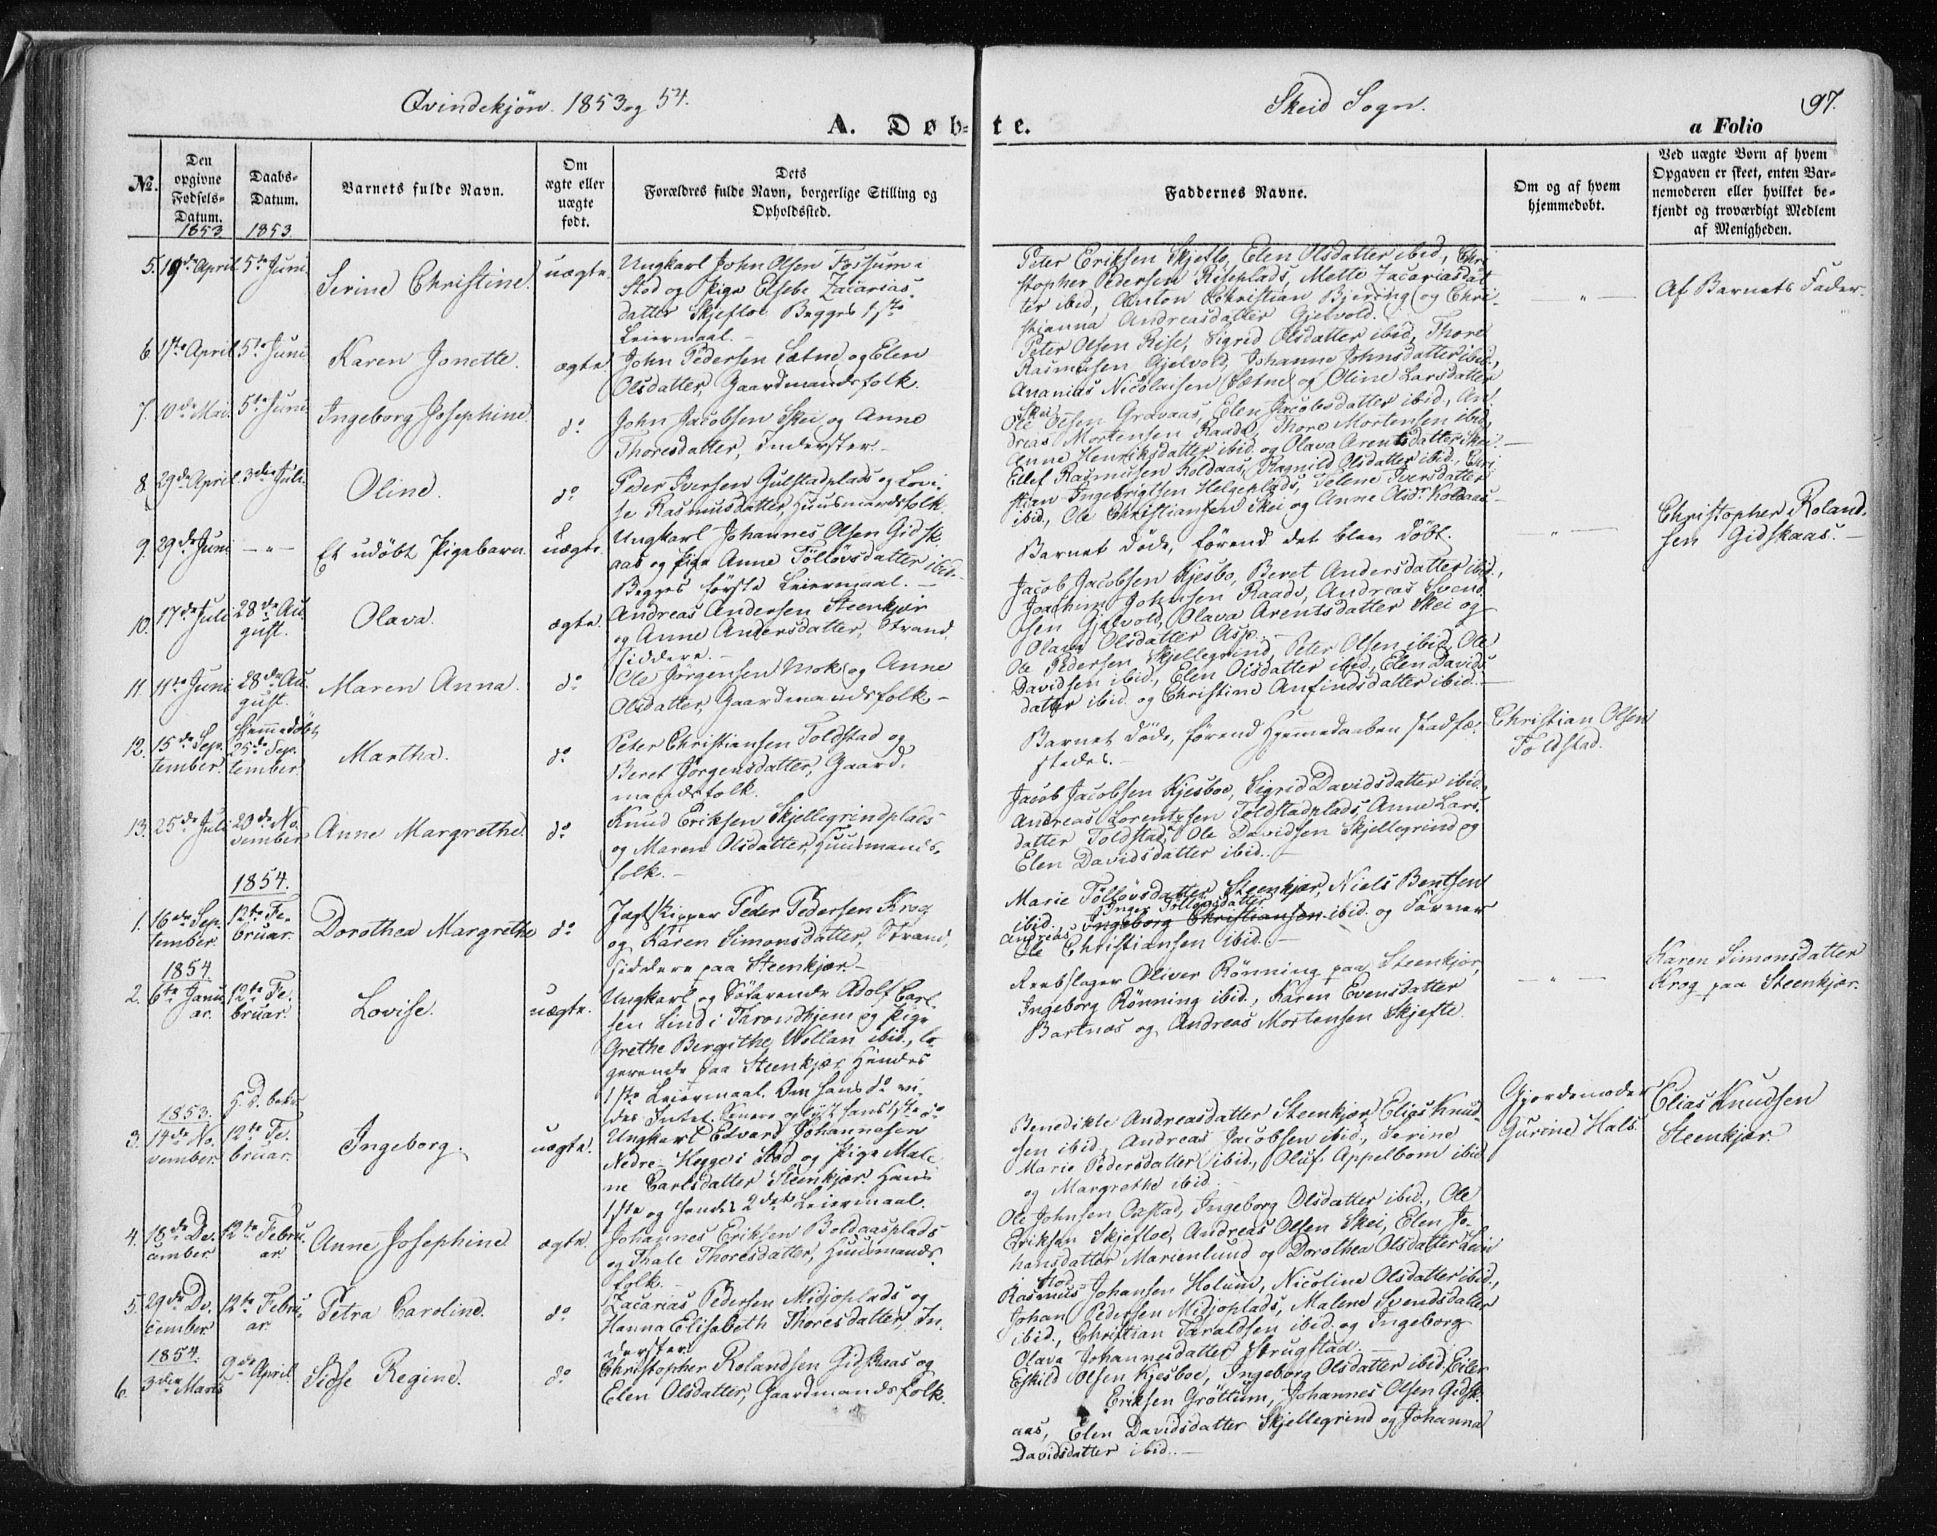 Qvindekjøn. 1853 og 54.
Skeid Sogn.
97.
A. Døbte.
a Folio
No.
Den opgivne Fødsels-Datum.
Daabs-Datum.
Barnets fulde Navn.
Om ægte eller uægte født.
Dets Forældres fulde Navn, borgerlige Stilling og Opholdssted.
Faddernes Navne.
Om og af hvem hjemmedøbt.
Ved uægte Børn af hvem Opgaven er skeet, enten Barnemoderen eller hvilket bekjendt og troværdigt Medlem af Menigheden.
1853 1853
5. 19de April 5te Juni
Serine Christine.
uægte.
Ungkarl John Olsen Fossum i
Stod og Pige Elsebe Zacarias
datter Skjefloe Begges 1ste
Leiermaal.
Peter Eriksen Skjefte, Elen Olsdatter ibid, Chri
stopher Pedersen Riseplads, Mette Zacariasdat
ter ibid, Anton Christian Bjering og Chri-
stianna Andreasdatter Gjelvold.
Af Barnets Fader.
6. 17de April 5te Juni
Karen Jonette.
ægte
John Pedersen Sætne og Elen
Olsdatter, Gaardmandsfolk.
Peter Olsen Rise, Sigrid Olsdatter ibid, Thore
Rasmusen Gjelvold, Johanne Johnsdatter ibid.,
Ananias Nicolaisen Sætne og Oline Larsdatter
Skei.
7. 10de Mai 5te Juni
Ingeborg Josephine.
do
John Jacobsen Skei og Anne
Thoresdatter, Inderster.
Ole Olsen Gravaas, Elen Jacobsdatter ibid, An-
dreas Mortensen Raade, Thore Mortensen ibid,
Anne Henriksdatter ibid. og Olava Arentsdatter Skei.
8. 29de April 3die Juli
Oline.
do
Peder Iversen Gulstadplads og Lovi-
se Rasmusdatter, Huusmandsfolk.
Ellef Rasmusen Koldaas, Ragnild Olsdatter ibid., Chri
stian Ingebrigtsen Helgeplads, Iversdatter
ibid, Ole Christiansen Skei og Anne Olsdr Koldaas.
9. 29de Juni
Et udøbt Pigebarn.
uægte.
Ungkarl Johannes Olsen Gidsk
aas og Pige Anne Tølløvsdatter ibid.
Begges første Leiermaal.
Barnet døde, førend det blev døbt.
Christopher Roland-
sen Gidskaas.
10. 17de Juli 28de Au
gust.
Olava.
ægte.
Andreas Andersen Steenkjær
og Anne Andersdatter, Strand
siddere.
Jacob Jacobsen Kjesbo, Beret Andersdatter ibid.,
Joachim Johnsen Raade, Andreas Svend
sen Gjelvold, Olava Arentsdatter Skei og
Olava Olsdatter Asp.
11 11te Juni 28de Au
gust.
Maren Anna.
do
Ole Jørgensen Mok og Anne
Olsdatter, Gaardmandsfolk
Ole Pedersen Skjellegrind, Peter Olsen ibid, Ole
Davidsen ibid, Elen Olsdatter ibid, Elen Davids
datter ibid. og Christine Anfindsdatter ibid.
12. 15de Sep-
tember.
Hjemmedøbt
25de Sep-
tember.
Martha.
do
Peter Christiansen Foldstad og
Beret Jørgensdatter, Gaard-
mandsfolk.
Barnet døde, førend Hjemedaaben stadfæ-
stedes.
Christian Olsen
Foldstad.
13. 25de Juli 20de No-
vember
Anne Margrethe.
do
Knud Eriksen Skjellegrindplads
og Maren Olsdatter, Huusmands-
folk.
Jacob Jacobsen Kjesboe, Sigrid Davidsdatter ibid.
Andreas Lorentzsen Foldstadplads, Anne Lars
datter Foldstad, Ole Davidsen Skjellegrind og
Elen Davidsdatter ibid.
1854.
1. 16de Sep-
tember.
12te Fe-
bruar.
Dorothea Margrethe
do
Jægtskipper Peder Pedersen Krog
og Karen Simonsdatter, Strand
siddere paa Steenkjær.
Marie Tølløvsdatter Steenkjær, Niels Bentsen
ibid., Inger Tollevsdatter Ingeborg Christiansen ibid. og Farver
Andreas Ole Christiansen ibid.
1854.
2. 6te Janu
ar.
12te Fe-
bruar.
Lovise.
uægte.
Ungkarl og Søfarende Adolf Carl-
sen Lind i Throndhjem og Pige
Grethe Bergithe Wollan ibid., lo-
gerende paa Steenkjær Hendes
1ste Leiermaal. Om hans do vi-
des Intet.
Reebslager Oliver Rønning paa Steenkjær,
Ingeborg Rønning ibid., Karen Evensdatter
Bartnæs og Andreas Mortensen Skjefte.
Karen Simonsdatter
Krog paa Steenkjær.
1853.
3. 14de No-
vember.
H. D.
12te Fe-
bruar.
Ingeborg.
uægte.
Ungkarl Edvard Johannesen
Nedre Hegge i Stod og Pige Male
ne Carlsdatter Steenkjær. Hans
1ste og hendes 2det Leiermaal.
Benedikte Andreasdatter Steenkjær, Elias Knud-
sen ibid, Andreas Jacobsen ibid., Serine
Marie Pedersdatter ibid., Oluf Appelbom ibid
og Margrethe ibid.
Gjordemoder
Gurine Hals.
Elias Knudsen
Steenkjær.
4. 18de De-
cember
12te Febru-
ar.
Anne Josephine.
ægte.
Johannes Eriksen Boldaasplads
og Thale Thoresdatter, Huusmands
folk.
Ole Johnsen Oxstad, Ingeborg Olsdatter ibid., Ole
Eriksen Skjefloe, Andreas Olsen Skei, Elen Jo-
hansdatter Marienlund og Dorothea Olsdatter Lein
Stod.
5. 29de De-
cember
12te Febru-
ar.
Petra Caroline.
do
Zacarias Pedersen Midjoplads og
Hanna Elisabeth Thoresdatter, In-
derster.
Rasmus Johansen Holum, Nicoline Olsdatter ibid.,
Johan Pedersen Midjoplads, Malene Svendsdatter
ibid., Christian Taraldsen ibid. og Ingeborg
Olava Johannesdatter Strugstad.
1854.
6. 3die Marts
9de April
Sidse Regine.
do
Christopher Rolandsen Gidskaas og
Elen Olsdatter, Gaardmandsfolk.
Eskild Olsen Kjesboe, Ingeborg Olsdatter ibid, Eiler
Eriksen Grøttum, Johannes Olsen Gidsk-
aas, Elen Davidsdatter Skjellegrind og Johanna
Davidsdatter ibid.